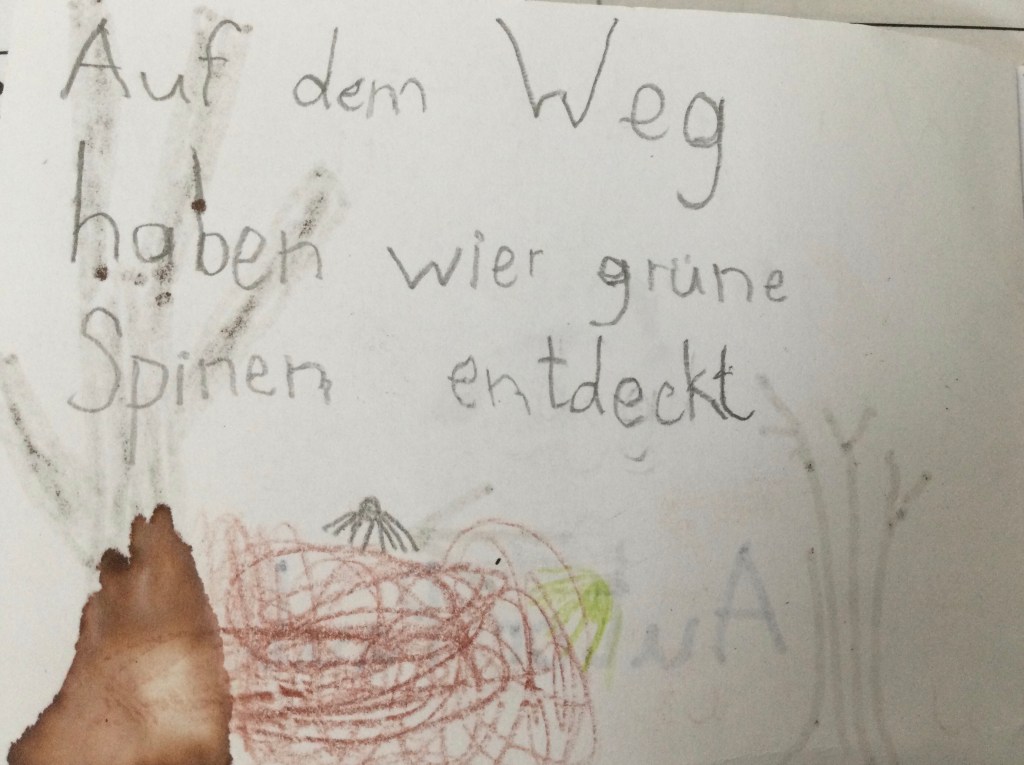 Auf dem Weg
haben wier grüne
Spinen entdeckt